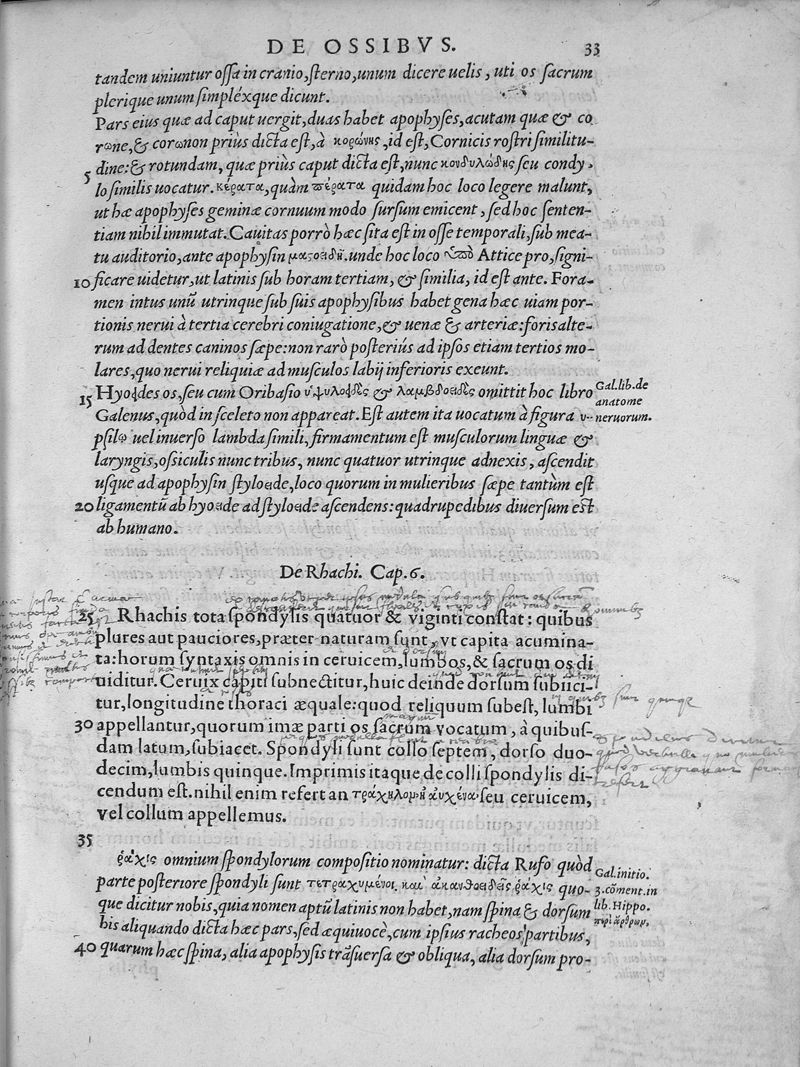 DE OSSIBVS. 33
tandem uniuntur ossa in cranio, sterno, unum dicere uelis, uti os sacrum
plerique unum simpléxque dicunt.
Pars eius quæ ad caput uergit, duas habet apophyses, acutam quæ & co
rωne, & corωnon priùs dicta est, à κορώνης, id est, Cornicis rostri similitu-
5 dine: & rotundam, quæ priùs caput dicta est, nunc κονδυλώδης seu condy
lo similis uocatur. κέρατα, quàm πέρατα quidam hoc loco legere malunt,
ut hæ apophyses geminæ cornuum modo sursum emicent, sed hoc senten-
tiam nihil immutat. Cauitas porrò hæc sita est in osse temporali, sub mea-
tu auditorio, ante apophysin μαςοειδῆ. unde hoc loco ὑπὸ Attice pro, signi-
10 ficare uidetur, ut latinis sub horam tertiam, & similia, id est ante. Fora-
men intus unū utrinque sub suis apophysibus habet gena hæc uiam por-
tionis nerui à tertia cerebri coniugatione, & uenæ & arteriæ: foris alte-
rum ad dentes caninos sæpe: non rarò posteriùs ad ipsos etiam tertios mo-
lares, quo nerui reliquiæ ad musculos labij inferioris exeunt.
15 Hyoeides os, seu cum Oribasio ὑψυλοειδὲς & λαμβδοειδὲς omittit hoc libro
Gal. lib. de
anatome
neruorum.
Galenus, quòd in sceleto non appareat. Est autem ita uocatum à figura υ-
psilω uel inuerso lambda simili, firmamentum est musculorum linguæ &
laryngis, ossiculis nunc tribus, nunc quatuor utrinque adnexis, ascendit
usque ad apophysin styloeide, loco quorum in mulieribus sæpe tantùm est
20 ligamentū ab hyoeide ad styloeide ascendens: quadrupedibus diuersum est
ab humano.
De Rhachi. Cap. 6.
25 Rhachis tota spondylis quatuor & viginti constat: quibus
plures aut pauciores, præter naturam sunt, vt capita acumina-
ta: horum syntaxis omnis in ceruicem, lumbos, & sacrum os di
uiditur. Ceruix capiti subnectitur, huic deinde dorsum subiici-
tur, longitudine thoraci æquale: quod reliquum subest, lumbi
30 appellantur, quorum imæ parti os sacrum vocatum, à quibus-
dam latum, subiacet. Spondyli sunt collo septem, dorso duo-
decim, lumbis quinque. Imprimis itaque de colli spondylis di-
cendum est. nihil enim refert an τράχηλομ ἢ αὐχένα seu ceruicem,
vel collum appellemus.
35
ῥάχις omnium spondylorum compositio nominatur: dicta Rufo quòd
parte posteriore spondyli sunt τετραχυμένοι καὶ ἀκανθοειδεῖς ῥάχις quo-
Gal. initio.
3. cōment. in
lib. Hippo.
περὶ ἄρθρωμ.
que dicitur nobis, quia nomen aptū latinis non habet, nam spina & dorsum
his aliquando dicta hæc pars, sed æquiuocè, cum ipsius racheos partibus,
40 quarum hæc spina, alia apophysis trāsuersa & obliqua, alia dorsum pro-